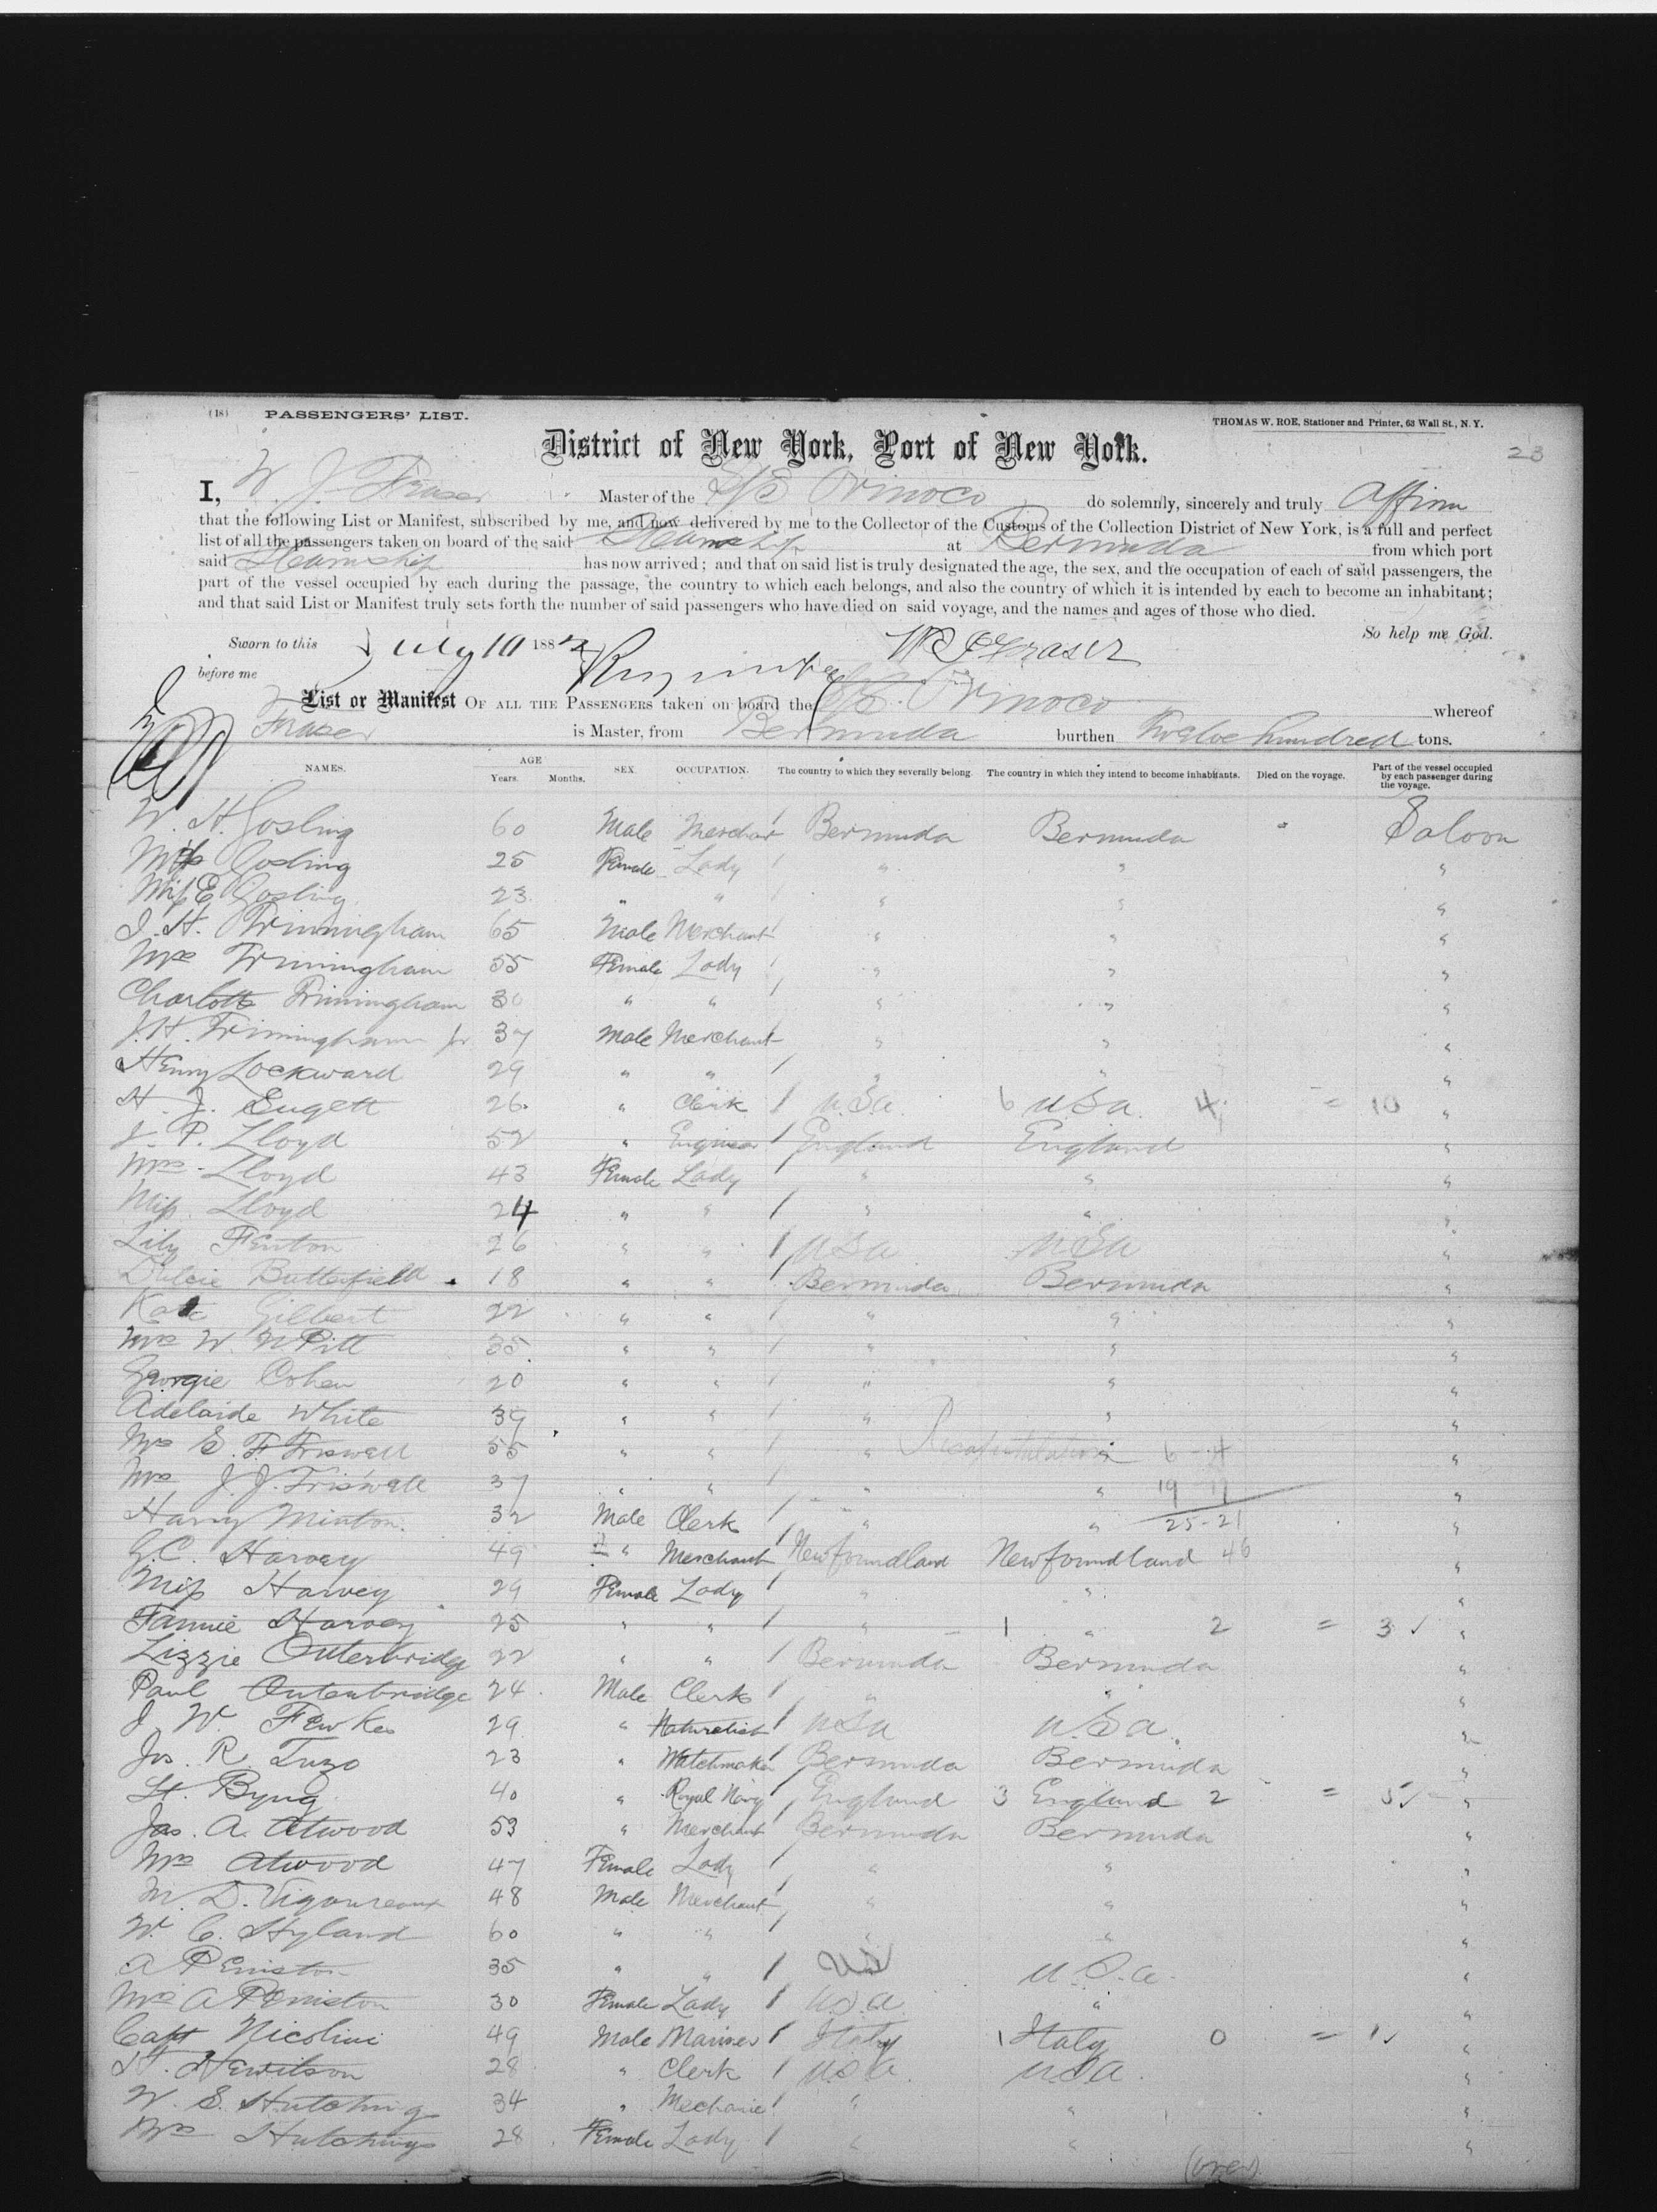 (18) PASSENGERS' LIST.
THOMAS W. ROE, Stationer and Printer, 63 Wall St., N.Y.
District of New York, Port of New York.
23
I, W. J. Fraser Master of the S/S Orinoco do solemnly, sincerely and truly affirm
that the following List or Manifest, subscribed by me, and now delivered by me to the Collector of the Customs of the Collection District of New York, is a full and perfect
list of all the passengers taken on board of the said Steamship at Bermuda from which port
said Steamship has now arrived; and that on said list is truly designated the age, the sex, and the occupation of each of said passengers, the
part of the vessel occupied by each during the passage, the country to which each belongs, and also the country of which it is intended by each to become an inhabitant;
and that said List or Manifest truly sets forth the number of said passengers who have died on said voyage, and the names and ages of those who died.
So help me God.
Sworn to this July 10 188 W J Fraser
before me
List or Manifest OF ALL THE PASSENGERS taken on board the S/S. Orinoco whereof
Fraser is Master, from Bermuda burthen Twelve hundred tons.
NAMES. AGE Years. Months. SEX. OCCUPATION. The country to which they severally belong. The country in which they intend to become inhabitants. Died on the voyage. Part of the vessel occupied by each passenger during the voyage.
W. H. Gosling 60 Male Merchant Bermuda Bermuda Saloon
Miss Gosling 25 Female Lady " " "
Miss E Gosling 23 " " " " "
J. H. Trimingham 65 Male Merchant " " "
Mrs Trimingham 55 Female Lady " " "
Charlotte Trimingham 30 " " " " "
J. H. Trimingham jr 37 Male Merchant " " "
Henry Lockward 29 " " " " "
H. J. Sugett 26 " Clerk USa 6 USa 4 = 10 "
J. P. Lloyd 52 " Engineer England England "
Mrs Lloyd 43 Female Lady " " "
Miss Lloyd 24 " " " " "
Lily Fenton 26 " " USa USa "
Dulcie Butterfield 18 " " Bermuda Bermuda "
Kate Gilbert 22 " " " " "
Mrs W. N Pitt 35 " " " " "
Georgie Cohen 20 " " " " "
Adelaide White 39 " " " " "
Mrs S. F. Friswell 55 " " " Recapitulation " 6 - 4 "
Mrs J. J. Friswell 37 " " " " 19 17 "
Harry Minton 32 Male Clerk " " 25-21 "
G. C. Harvey 49 " Merchant Newfoundland Newfoundland 46 "
Miss Harvey 29 Female Lady " " "
Fannie Harvey 25 " " " 1 " 2 = 3 ✓ "
Lizzie Outerbridge 22 " " Bermuda Bermuda "
Paul Outerbridge 24 Male Clerk " " "
J. W. Fewkes 29 " Naturalist USa USa "
Jos. R Tuzo 23 " Watchmaker Bermuda Bermuda "
Lt. Byng 40 " Royal Navy England 3 England 2 = 5 ✓ "
Jas. A. Atwood 53 " Merchant Bermuda Bermuda "
Mrs Atwood 47 Female Lady " " "
M. D. Vigoureaux 48 Male Merchant " " "
W. C. Hyland 60 " " " " "
A Peniston 35 " " US U.S.a. "
Mrs A Peniston 30 Female Lady U.S.a " "
Capt Nicolini 49 Male Mariner Italy 1 Italy 0 = 1 ✓ "
H. Hewitson 28 " Clerk USA. USA. "
W. S. Hutchings 34 " Mechanic " " "
Mrs Hutchings 28 Female Lady " " "
(over)